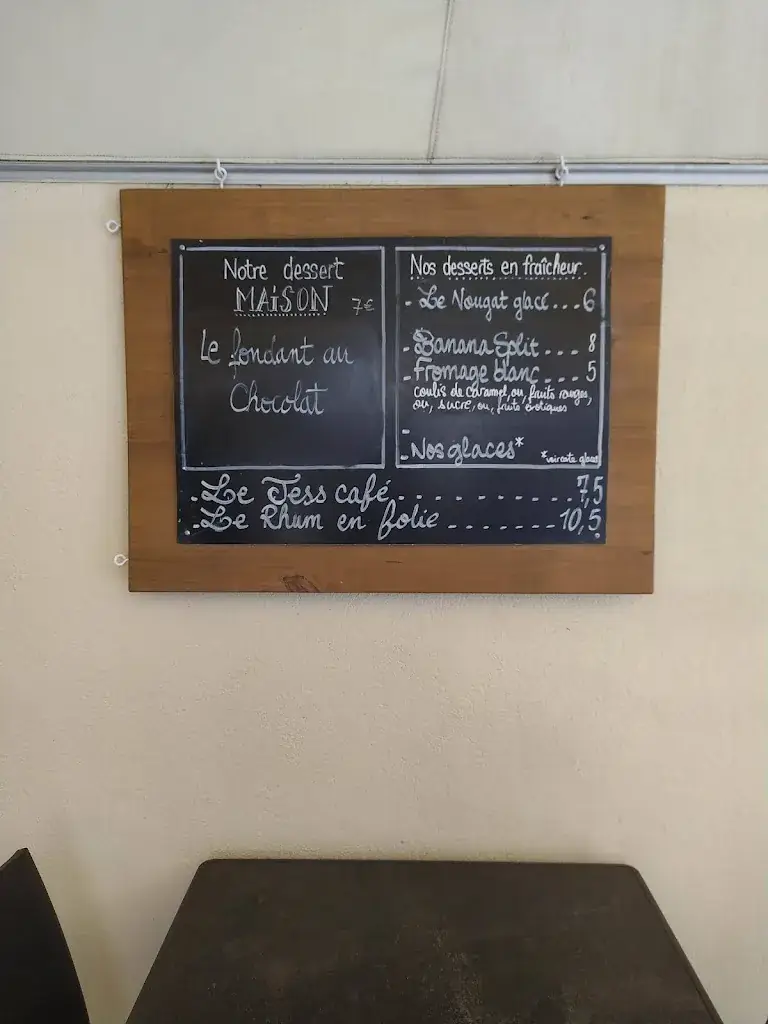 Notre dessert
MAiSON 7€
Le fondant au
Chocolat
Nos desserts en fraîcheur.
- Le Nougat glacé...6
- Banana Split.... 8
- Fromage blanc... 5
coulis de caramel, ou, fruits rouges,
ou, sucre, ou, fruits exotiques
- Nos glaces*
*voir carte glaces
. Le Tess café. . . . . . . . . . . 7,5
. Le Rhum en folie ....... 10,5